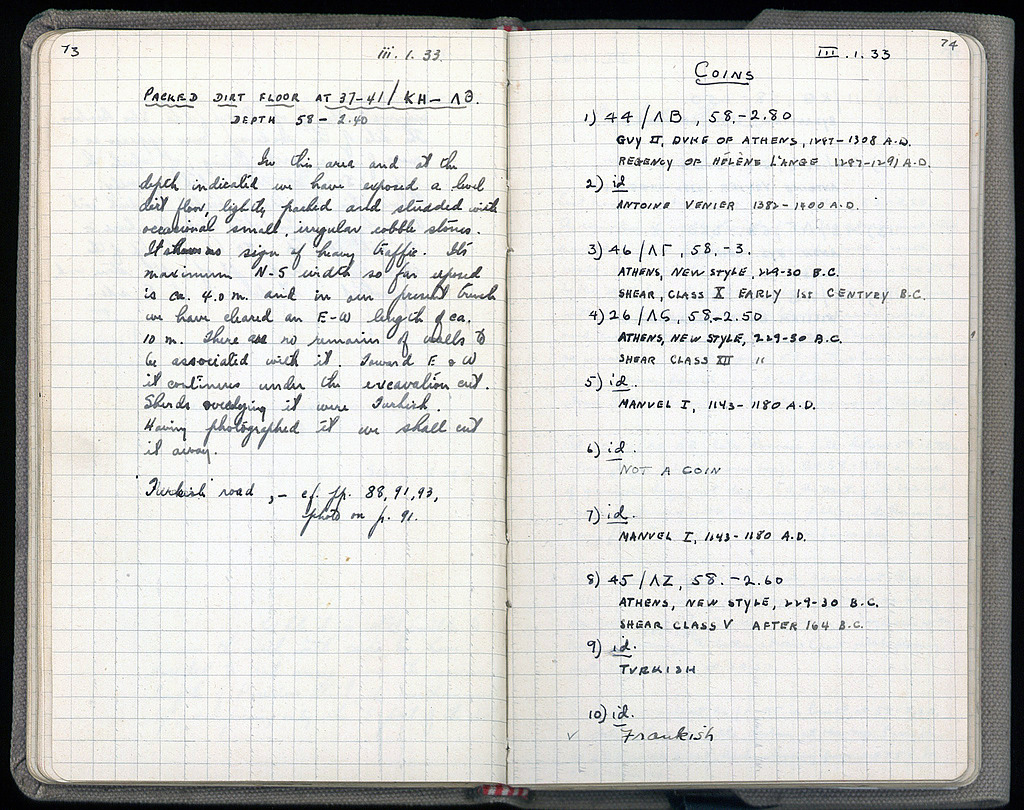 73
iii. 1. 33.
PACKED DIRT FLOOR AT 37-41/ KH- ΛΘ.
DEPTH 58 - 2.40
In this area and at the
depth indicated we have exposed a level
dirt floor, lightly packed and studded with
occasional small, irregular cobble stones.
It shows no sign of heavy traffic. Its
maximum N-S width so far exposed
is ca. 4.0 m. and in our present trench
we have cleared an E-W length of ca.
10 m. There are no remains of walls to
be associated with it. Toward E & W
it continues under the excavation cut.
Sherds overlying it were Turkish.
Having photographed it we shall cut
it away.
"Turkish" road, - cf. pp. 88, 91, 93,
photo on p. 91.
74
III. 1. 33
COINS
1) 44 / ΛΒ, 58, -2.80
GUY II, DUKE OF ATHENS, 1287-1308 A.D.
REGENCY OF HÉLÈNE L'ANGE 1287-1291 A.D.
2) id
ANTOINE VENIER 1382-1400 A.D.
3) 46 / ΛΓ, 58, -3.
ATHENS, NEW STYLE, 229-30 B.C.
SHEAR, CLASS X EARLY 1st CENTVRY B.C.
4) 26 / ΛS, 58, -2.50
ATHENS, NEW STYLE, 229-30 B.C.
SHEAR CLASS XII "
5) id.
MANVEL I, 1143-1180 A.D.
6) id.
NOT A COIN
7) id.
MANVEL I, 1143-1180 A.D.
8) 45 / ΛΖ, 58. -2.60
ATHENS, NEW STYLE, 229-30 B.C.
SHEAR CLASS V AFTER 164 B.C.
9) id.
TVRKISH
10) id.
✓ Frankish